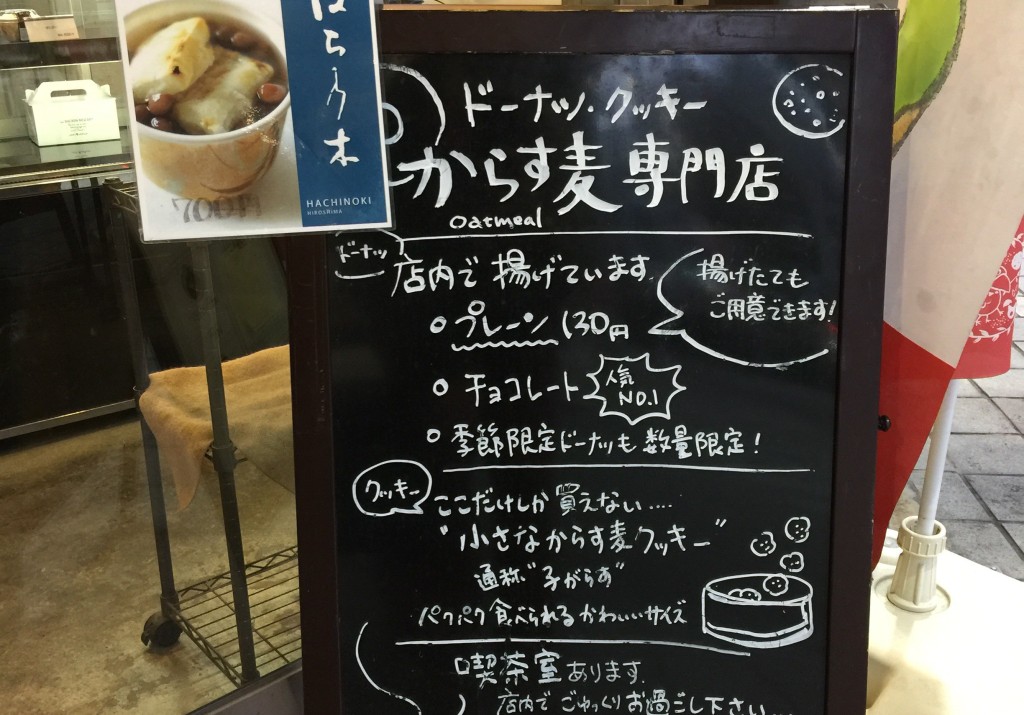 はちの木
700円
HACHINOKI
HIROSHIMA
ドーナッツ・クッキー
からす麦専門店
oatmeal
ドーナッツ
店内で揚げています
揚げたても
ご用意できます!
プレーン 130円
チョコレート
人気
NO.1
季節限定ドーナッツも数量限定!
クッキー
ここだけしか買えない....
"小さなからす麦クッキー"
通称"子がらす"
パクパク食べられるかわいいサイズ
喫茶室あります
店内でごゆっくりお過ごし下さい...